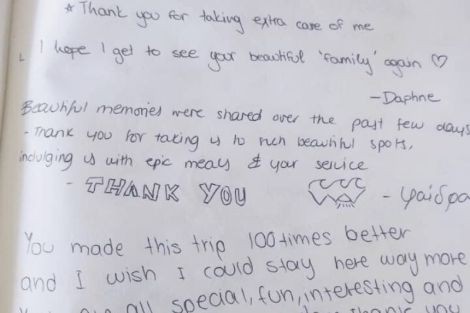 * Thank you for taking extra care of me
I hope I get to see your beautiful 'family' again ♡
- Daphne
Beautiful memories were shared over the past few days
- Thank you for taking us to such beautiful spots,
indulging us with epic meals & your service
- THANK YOU
You made this trip 100 times better
and I wish I could stay here way more
all special, fun, interesting and
thank you